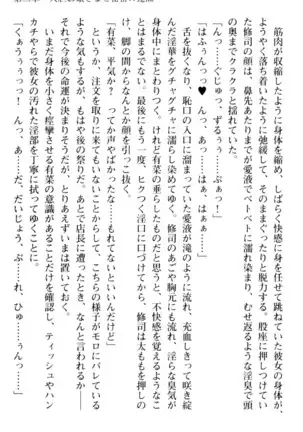 筋肉が収縮したように身体を縮め、しばらく快感に身を任せて跳ねていた彼女の身体が、
ようやく落ち着いたように弛緩して、そのままぐったりと脱力する。股座に押しつけた
修司の顔は、鼻先あたりまでが愛液でベトベトに濡れ染まり、むせ返るような淫臭で頭
の奥までクラクラと揺れていた。
「んっ……ぐじゅっ、ずるぅぅっ……ぷぁっ！」
「はふぅんっっ♥　んっ、あっ……はぁ、はぁぁ……」
舌を抜くなり、恥口の入口に溜まっていた愛液が滝のように流れ、充血しきって咲き綻
んだ淫華をグチャグチャに濡らし染めてゆく。修司のあごや胸元にも流れ、淫らな臭気が
身体中にまとわりつく。けれど有菜の垂らしたものだと思うと、不快感を覚えるようなこ
とはまるでない。最後にもう一度、ヒクつく淫口に口づけてから、修司は太ももを押しの
け、脚の間からなんとか顔を引っこ抜く。
「有菜、平気か？　てか声やばかったな……もれてないといいんだけど」
とはいえ、注文を取りに来てもいないことからして、こちらの様子がモロにバレている
ような気もするが、もはや後の祭りだ。あとで店長に遭ったとき、なんと言われるか――
それで今後の運命が決まりそうだが、とりあえずいまは置いておく。
いまだに身体を小さく痙攣させる有菜の意識があることだけを確認し、ティッシュやハン
カチやらで彼女の汚れた淫部を丁寧に拭ってゆくことに。
「んっ、ぁっっっ！　んっ、あ……だ、だいじょう、ぶ……れ、ひゅ……ぅんっ……
うぁんっ……♥」